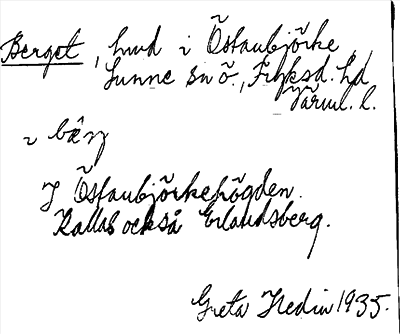 Berget, hmd i Östanbjörke
Sunne sn ö., Fryksd. hd
Värml. l.
I Östanbjörkehögden.
Kallas också Erlandsberg.
Greta Hedin 1935.